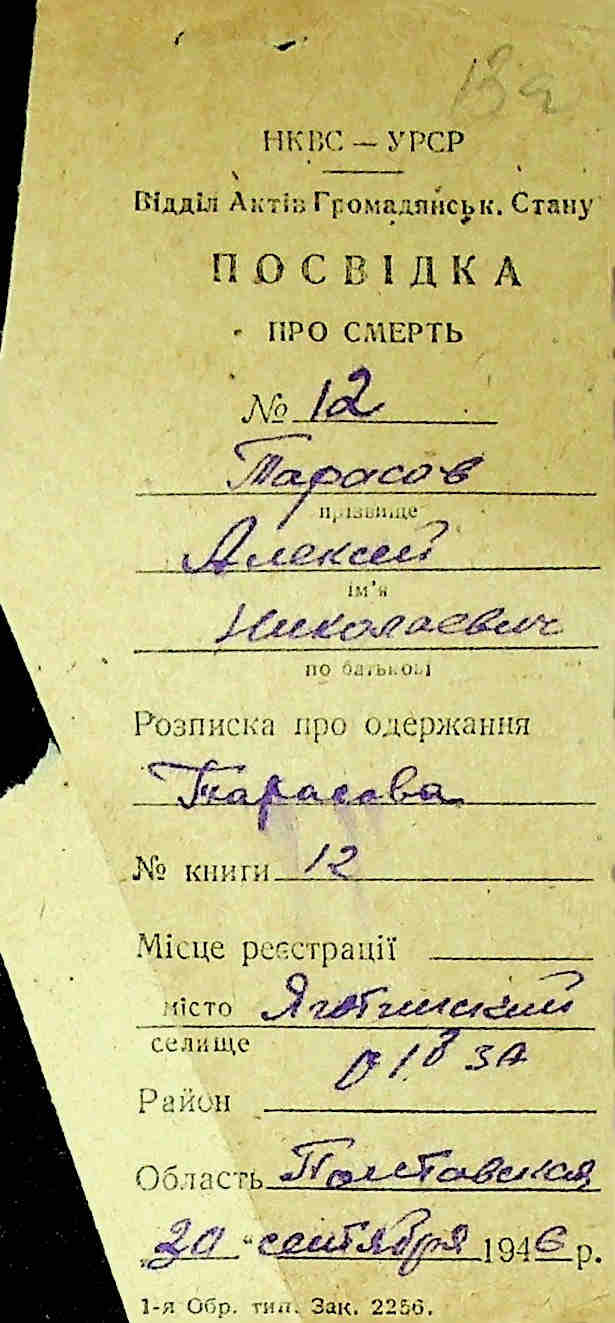 НКВС — УРСР
Відділ Актів Громадянськ. Стану
ПОСВІДКА
ПРО СМЕРТЬ
№ 12
Тарасов
прізвище
Алексей
ім'я
Николаевич
по батькові
Розписка про одержання
Тарасова
№ книги 12
Місце реєстрації
місто Яготинский
селище
Район
Область Полтавская
„20 “ сентября 1946 р.
1-я Обр. тип. Зак. 2256.